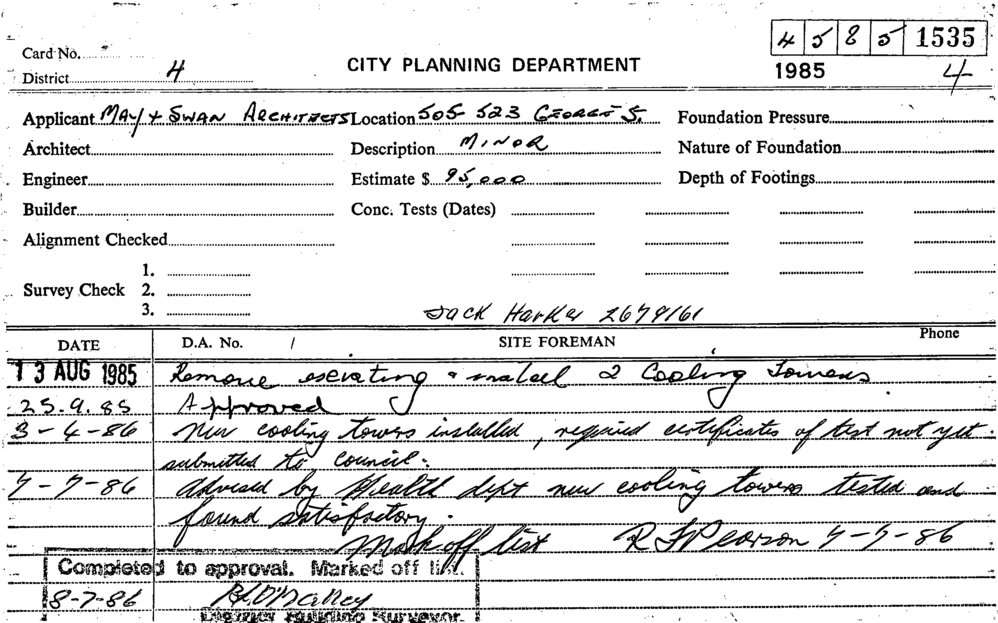 4 5 8 5 1535
Card No.
District 4 CITY PLANNING DEPARTMENT 1985 4
Applicant MAY + SWAN ARCHITECTS Location 505-523 GEORGE S. Foundation Pressure
Architect Description MINOR Nature of Foundation
Engineer Estimate $ 95,000 Depth of Footings
Builder Conc. Tests (Dates)
Alignment Checked
1.
Survey Check 2.
3.
Jack Harker 2679161
DATE D.A. No. / SITE FOREMAN Phone
13 AUG 1985 Remove & install 2 Cooling Towers
25.9.85 Approved
3-4-86 New cooling towers installed, required certificates of test not yet
submitted to council.
7-7-86 advised by Health dept new cooling towers tested and
found satisfactory.
Mark off list R F Pearson 7-7-86
Completed to approval. Marked off list.
8-7-86
District Building Surveyor.